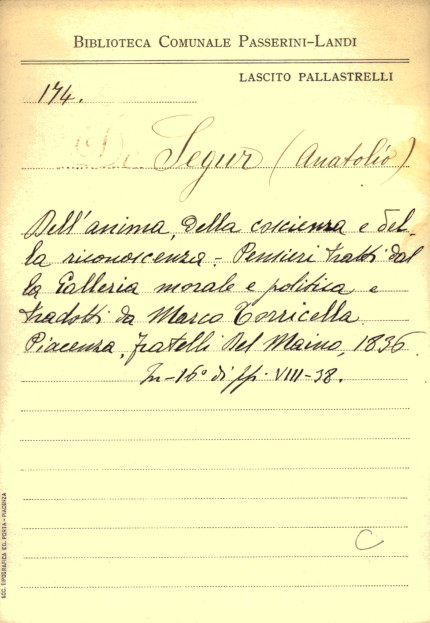 BIBLIOTECA COMUNALE PASSERINI-LANDI
LASCITO PALLASTRELLI
174.
De Segur (Anatolio)
Dell'anima, della coscienza e del-
la riconoscenza - Pensieri tratti dal
la Galleria morale e politica e
tradotti da Marco Torricella.
Piacenza, fratelli Del Maino, 1836.
In-16° di pp. VIII-38.
C
SOC. TIPOGRAFICA ED. PORTA - PIACENZA